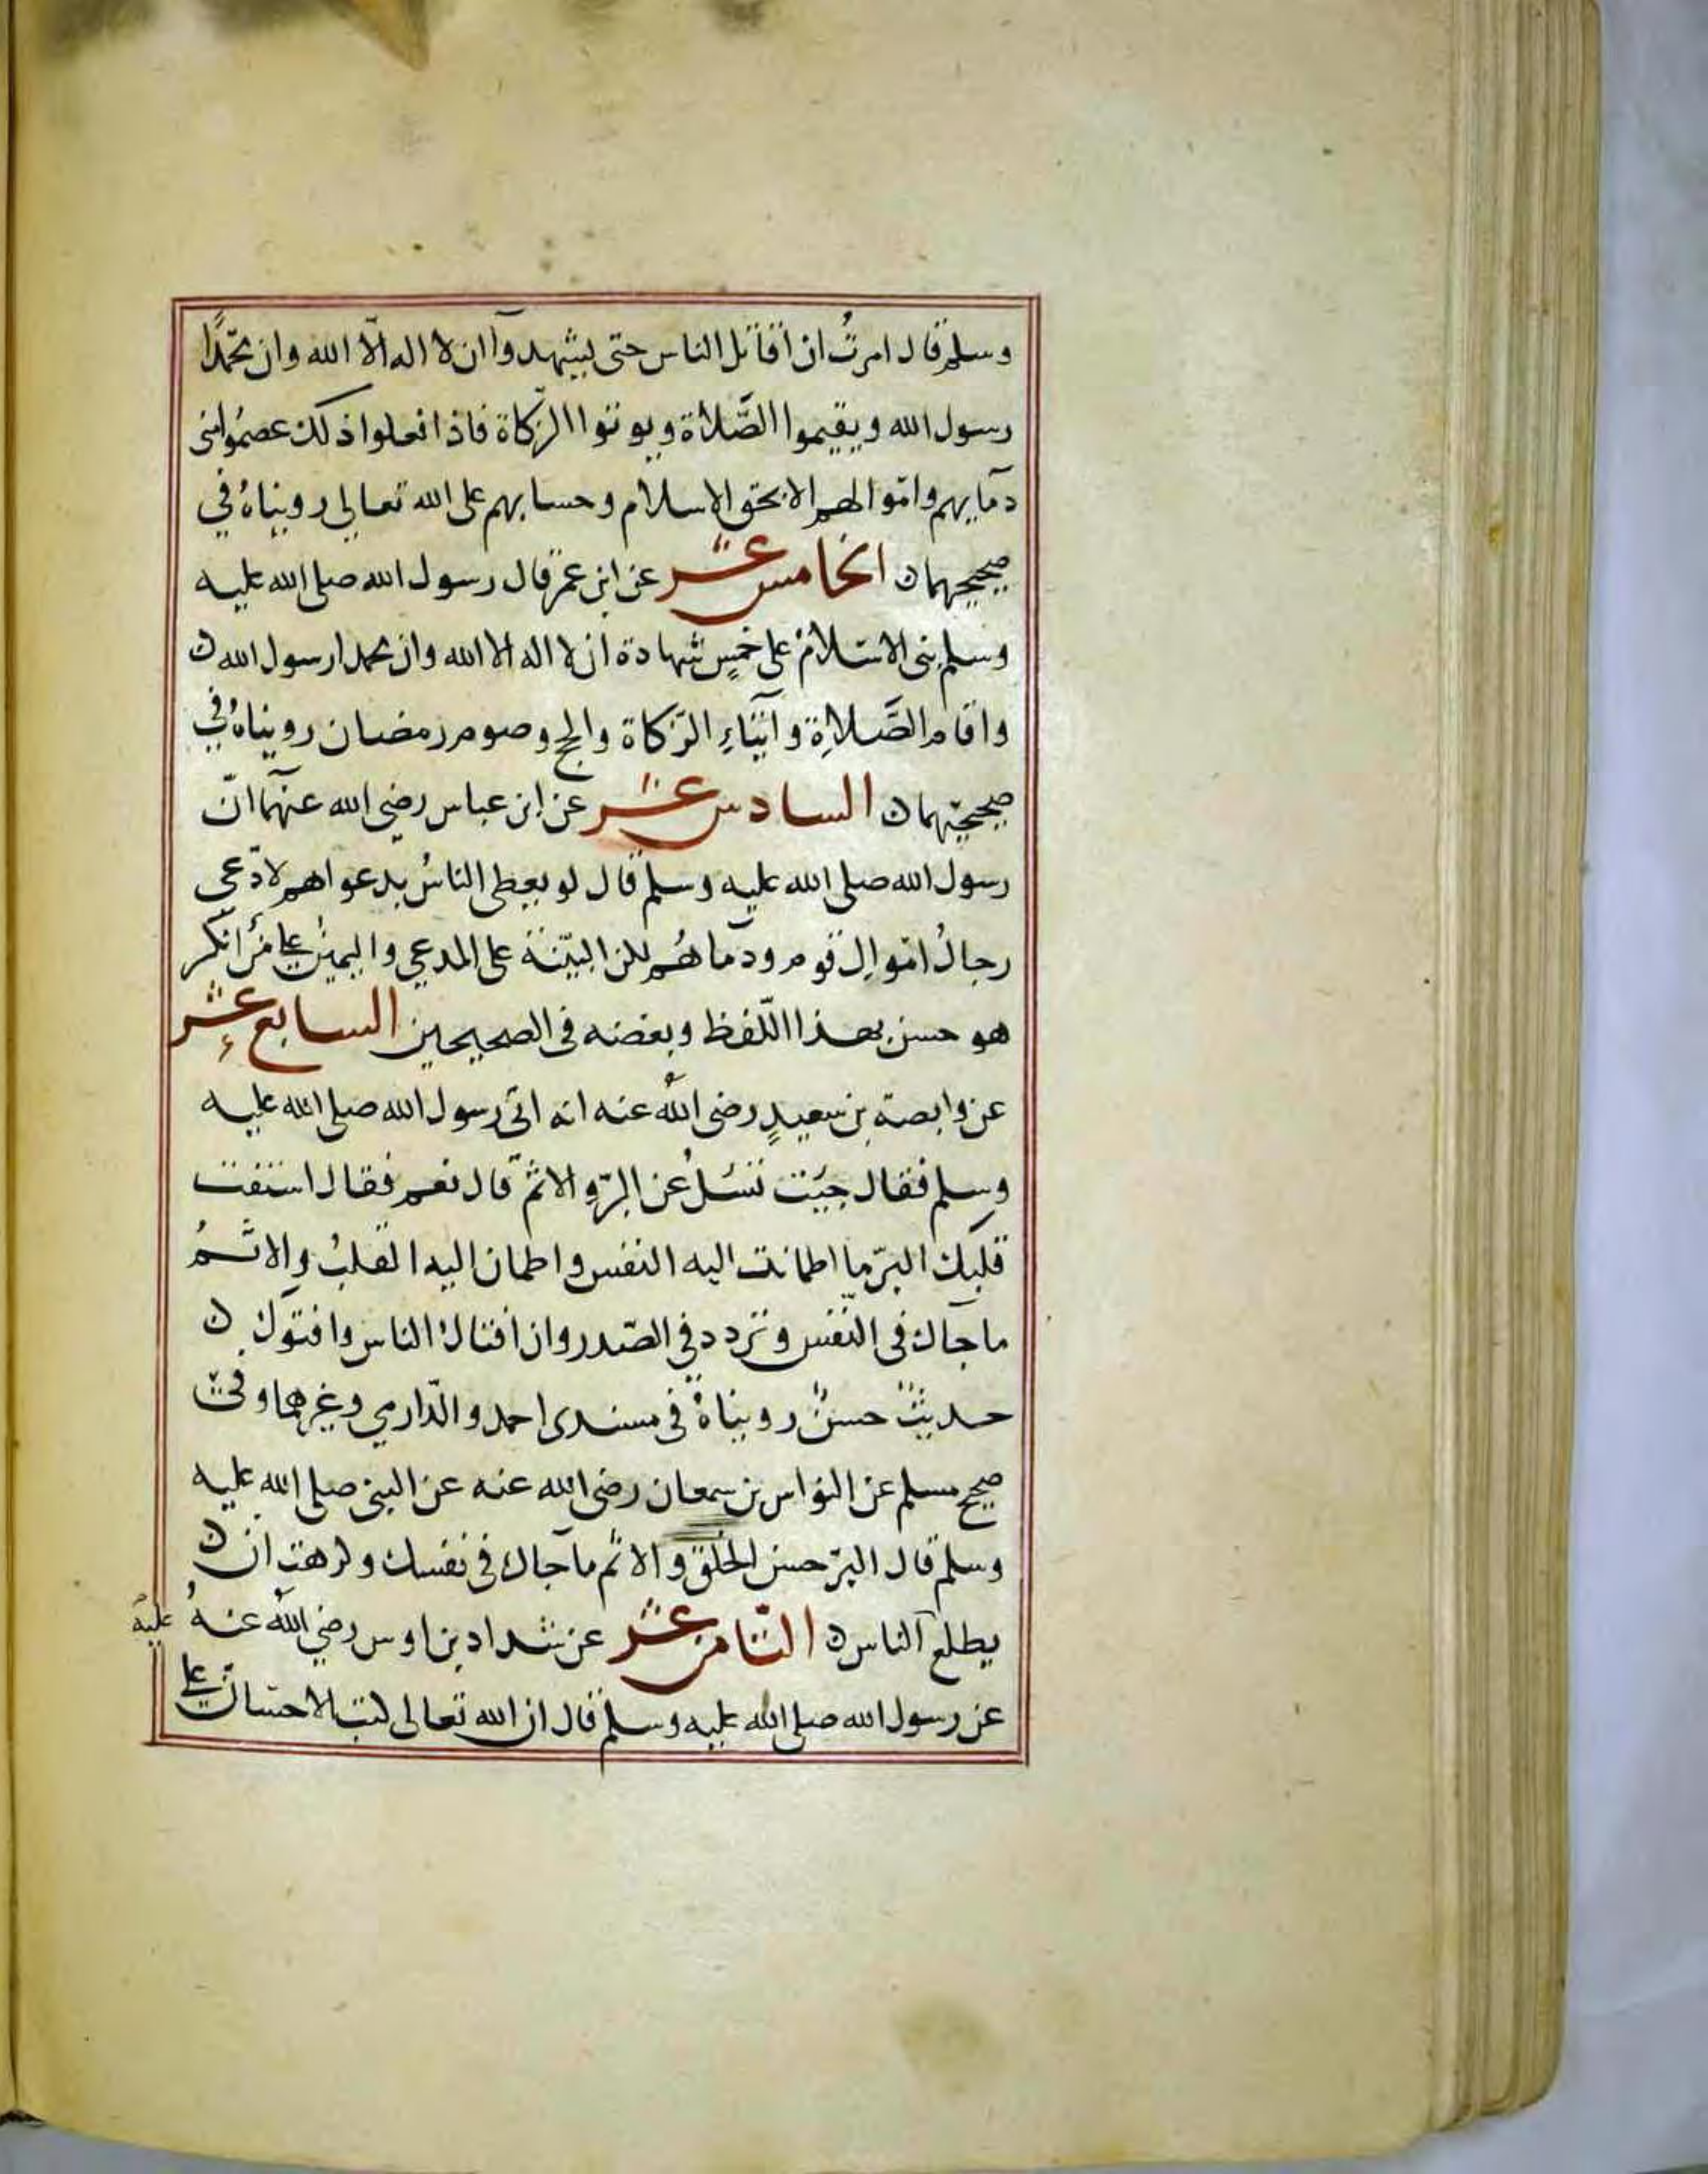 وسلم قال امرتُ ان أقاتل الناس حتى يشهدوا ان لا اله الّا الله وان محمّدًا
رسول الله ويقيموا الصَّلاة ويوتوا الزّكاة فاذا فعلوا ذلك عصمُوا منى
دمايهم واموالهم الا بحق الاسلام وحسابهم على الله تعالى رويناهُ في
صحيحهما ن الخامس عشر عن ابن عمر قال رسول الله صلى الله عليه
وسلم بنى الاسلامُ على خمسٍ شهادة ان لا اله الا الله وان محمدا رسول الله ن
واقام الصَّلاةِ وآيتاءِ الزّكاة والحج وصوم رمضان رويناهُ في
صحيحيهما ن السادس عشر عن ابن عباس رضي الله عنهما انّ
رسول الله صلى الله عليه وسلم قال لو يعطى الناسُ بدعواهم لادّعى
رجالُ اموال قوم ودماهُم لكن البيّنة على المدعي واليمينُ على منْ انكر
هو حسن بهذا اللّفظ وبعضه في الصحيحين السابع عشر
عن وابصة بن سعيدٍ رضي الله عنه انه اتى رسول الله صلى الله عليه
وسلم فقال جيت تسئلُ عن البرّ والاثم قال نعم فقال استفت
قلبك البرّ ما اطمانت اليه النفس واطمان اليه القلبُ والاثمُ
ما حاك في النّفس وتردد في الصّدر وان افتاك الناس وافتوك ن
حديثٌ حسنٌ رويناهُ في مسندى احمد والدّارمي وغيرهما وفى
صحيح مسلم عن النواس بن سمعان رضي الله عنه عن النبي صلى الله عليه
وسلم قال البرّ حسن الخلق والاثم ما حاك في نفسك وكرهت ان ن
يطلع الناس ن الثامن عشر عن شداد بن اوس رضي الله عنهُ عليه
عن رسول الله صلى الله عليه وسلم قال ان الله تعالى كتب الاحسان على